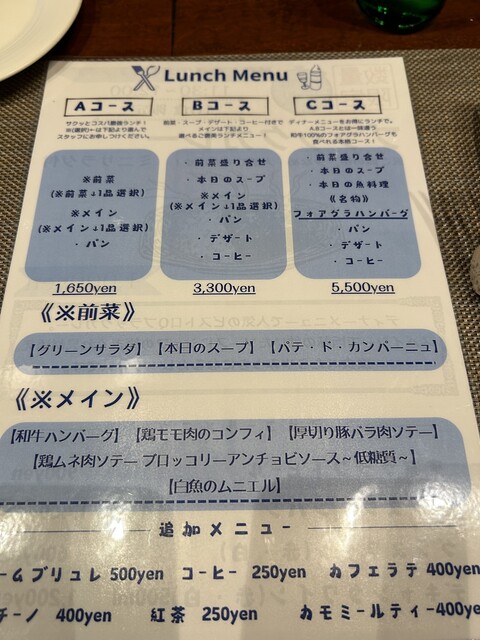 Lunch Menu
Aコース
サクッとコスパ最強ランチ!
※(選択)は下記より選んで
スタッフにお申しつけください。
※前菜
(※前菜↓1品選択)
※メイン
(※メイン↓1品選択)
・パン
1,650yen
Bコース
前菜・スープ・デザート・コーヒー付きで
メインは下記より
選べるご褒美ランチメニュー!
・前菜盛り合せ
・本日のスープ
※メイン
(※メイン↓1品選択)
・パン
・デザート
・コーヒー
3,300yen
Cコース
ディナーメニューをお得にランチで。
A,Bコースとは一味違う
和牛100%のフォアグラハンバーグも
食べれる本格コース!
・前菜盛り合せ
・本日のスープ
・本日の魚料理
《名物》
フォアグラハンバーグ
・パン
・デザート
・コーヒー
5,500yen
《※前菜》
【グリーンサラダ】【本日のスープ】【パテ・ド・カンパーニュ】
《※メイン》
【和牛ハンバーグ】【鶏モモ肉のコンフィ】【厚切り豚バラ肉ソテー】
【鶏ムネ肉ソテー ブロッコリーアンチョビソース～低糖質～】
【白魚のムニエル】
追加メニュー
ームブリュレ 500yen コーヒー 250yen カフェラテ 400yen
チーノ 400yen 紅茶 250yen カモミールティー400ye